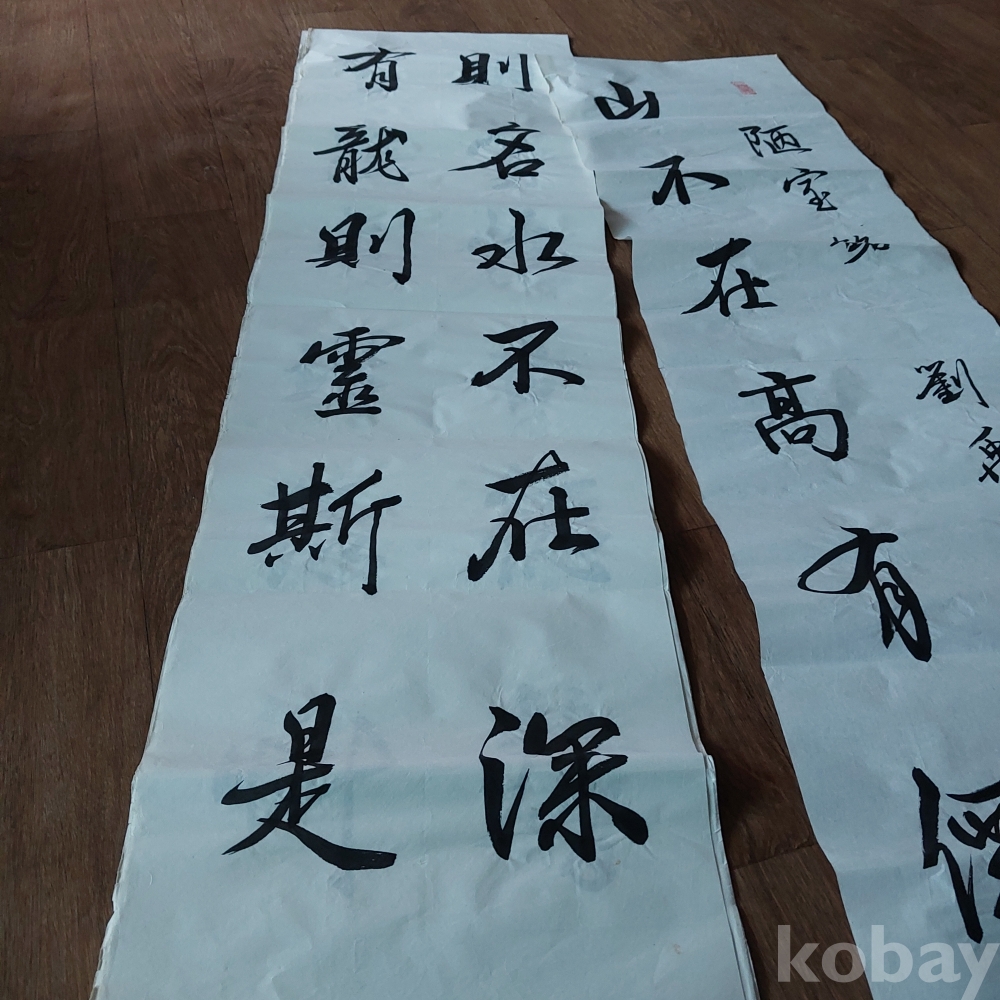 陋室銘 劉禹
山不在高有僊
則名水不在深
有龍則靈斯是
kobay